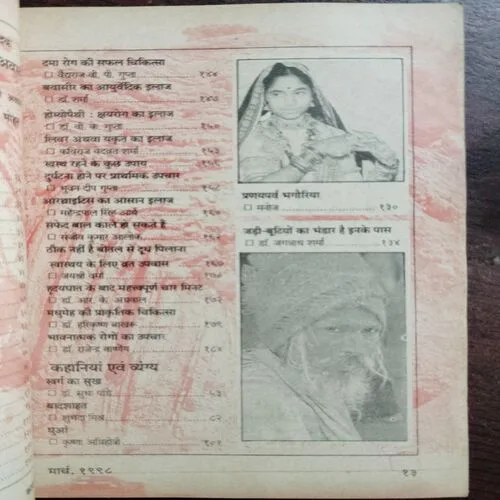 दमा रोग की सफल चिकित्सा
□ वैद्यराज वी. पी. गुप्ता १४४
बवासीर का आयुर्वेदिक इलाज
□ डॉ. शर्मा १४७
होम्योपैथी : क्षयरोग का इलाज
□ डॉ. वी. के. गुप्ता १५०
लिवर अथवा यकृत का इलाज
□ कविराज वेदव्रत शर्मा १५३
स्वस्थ रहने के कुछ उपाय
दुर्घटना होने पर प्राथमिक उपचार
□ भुवन दीप गुप्ता
आरथ्राइटिस का आसान इलाज
□ महेन्द्रपाल सिंह
सफेद बाल काले हो सकते हैं
□ संजीव कुमार
ठीक नहीं है बोतल से दूध पिलाना
स्वास्थ्य के लिए व्रत उपवास
□ जयश्री वर्मा
हृदयघात के बाद महत्त्वपूर्ण चार मिनट
□ डॉ. आर. के. अग्रवाल १७२
मधुमेह की प्राकृतिक चिकित्सा
□ डॉ. हरिकृष्ण बाखरू १७९
भावनात्मक रोगों का उपचार
□ डॉ. राजेन्द्र १८०
कहानियां एवं व्यंग्य
स्वर्ग का सुख
□ डॉ. सुधा पांडे ५३
बादशाहत
□ शुभदा मिश्र ८२
धुआं
□ कृष्णा अग्निहोत्री १०१
प्रणयपर्व भगोरिया
□ मनोज १३०
जड़ी-बूटियों का भंडार है इनके पास
□ डॉ. जगन्नाथ शर्मा १३४
मार्च, १९९८ १३